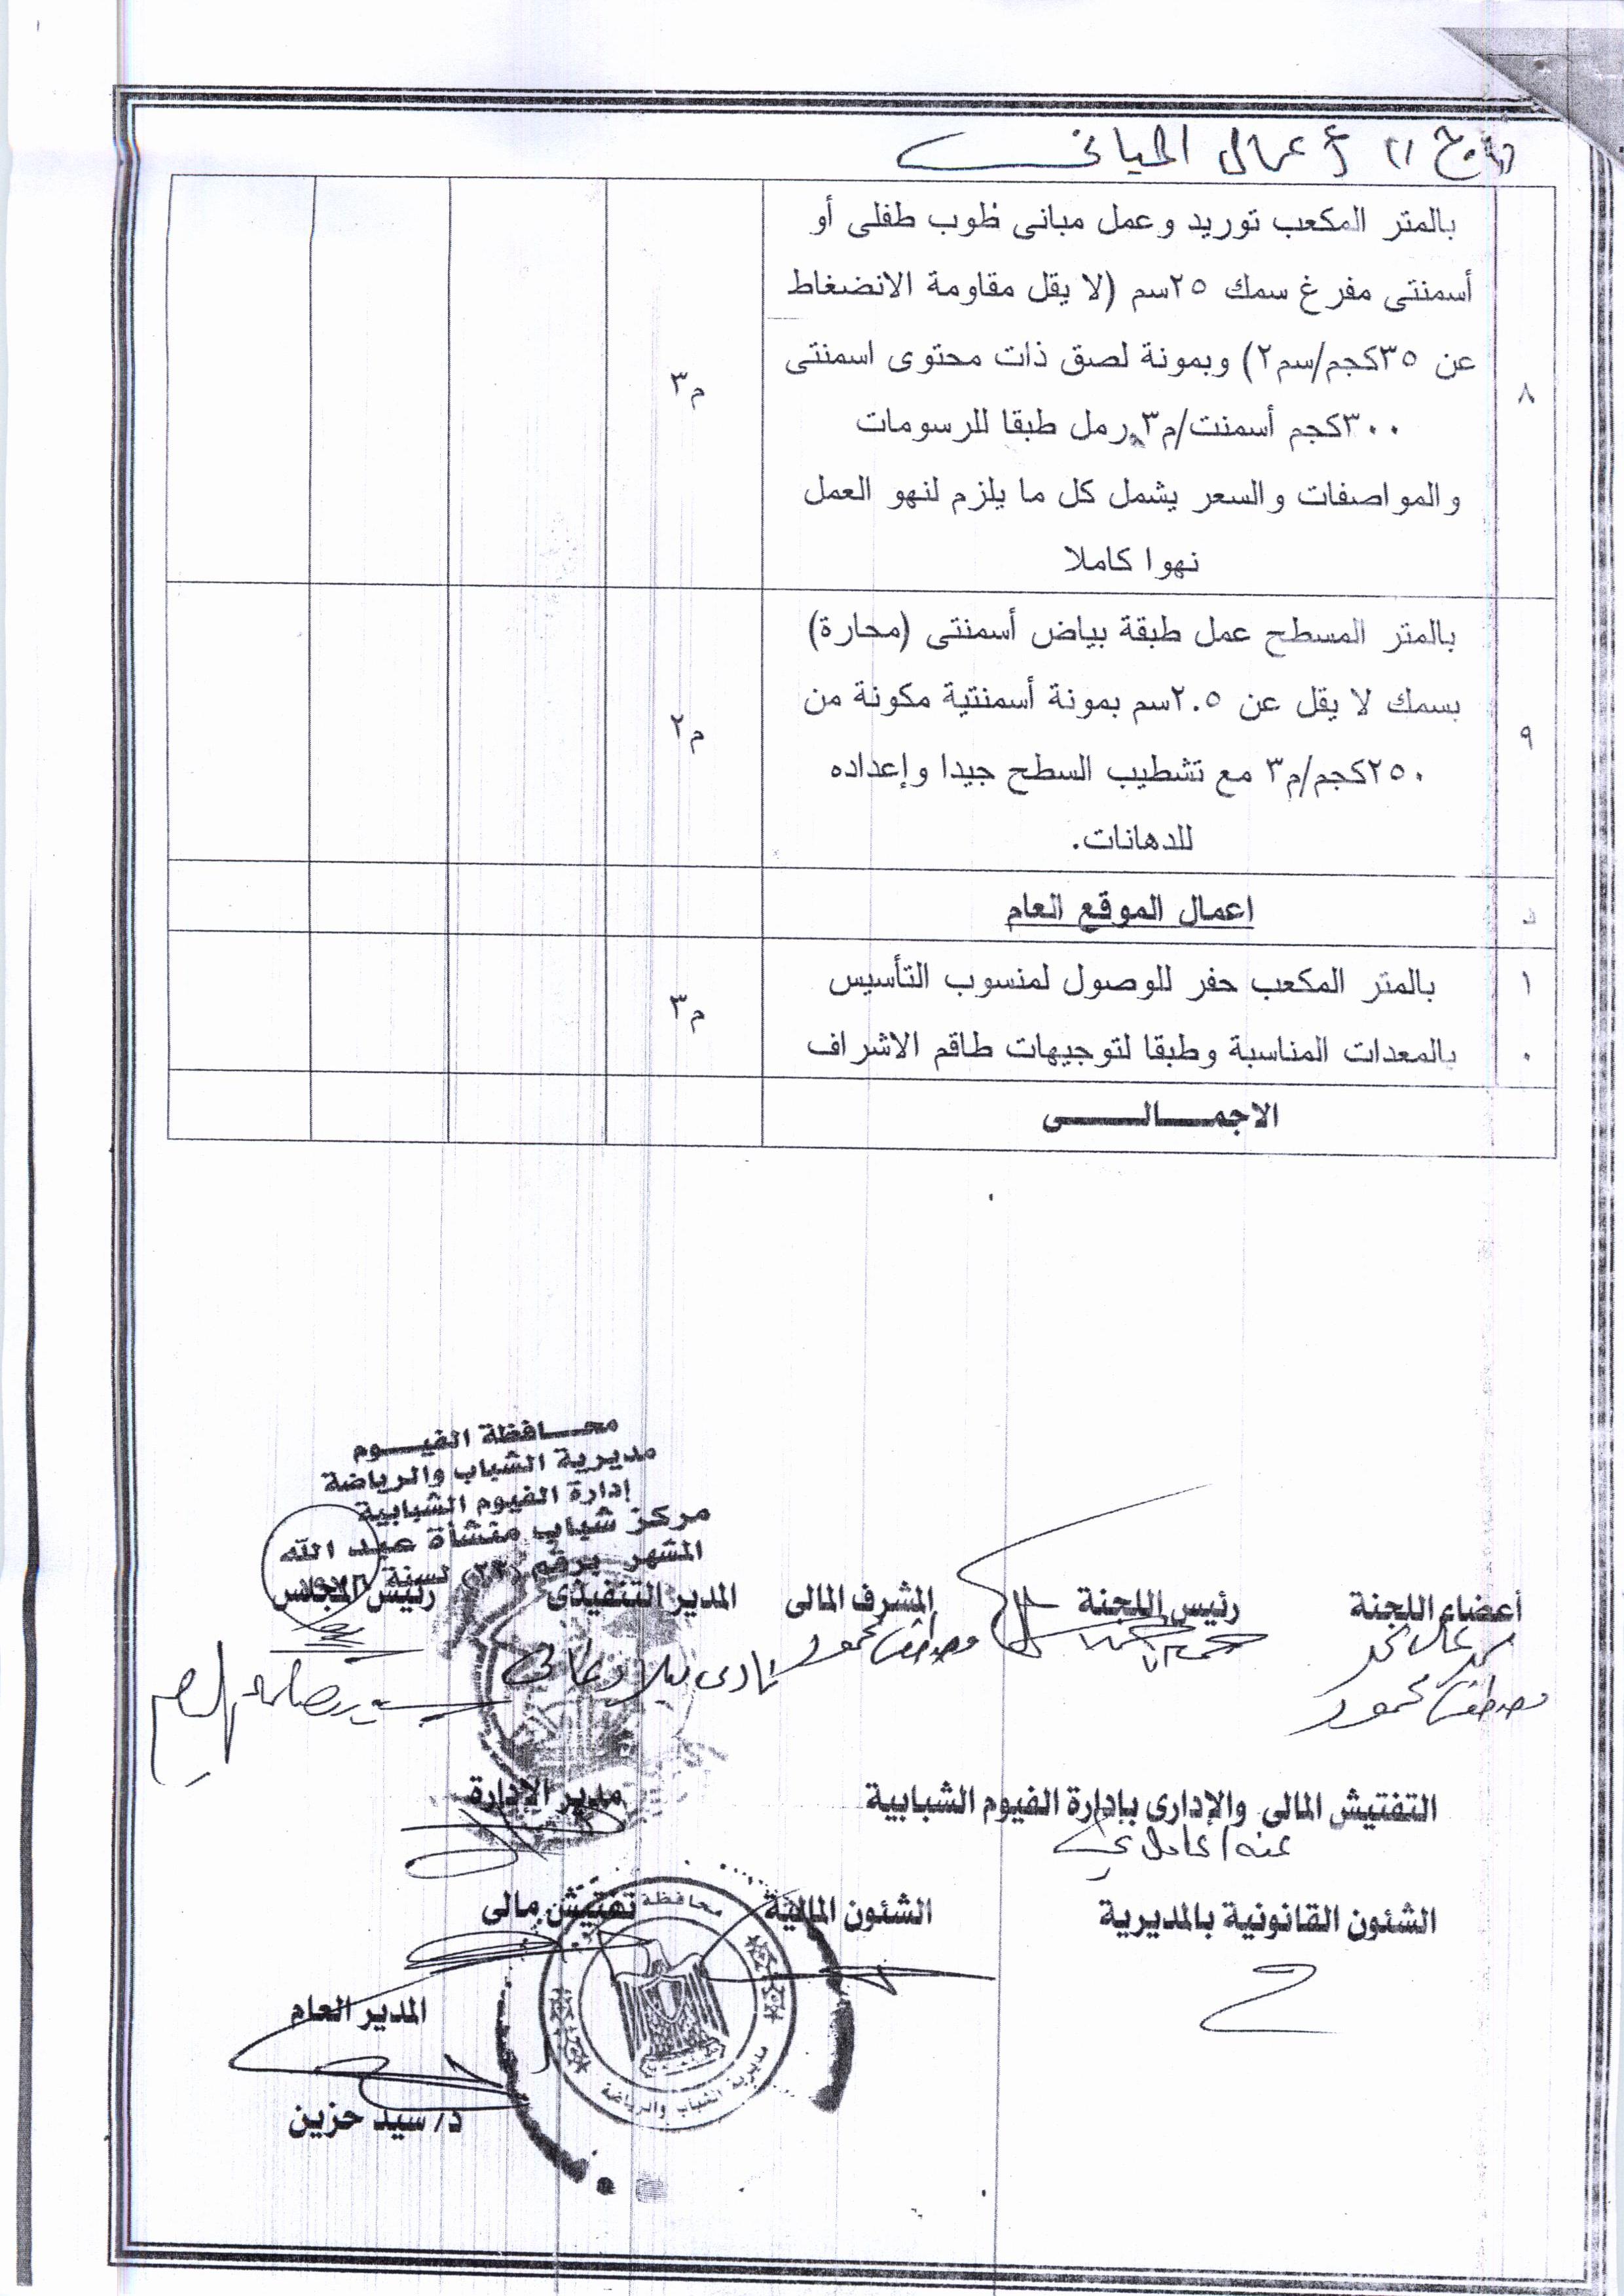 أعمال المبانى
بالمتر المكعب توريد وعمل مبانى طوب طفلى أو
أسمنتى مفرغ سمك ٢٥سم (لا يقل مقاومة الانضغاط
عن ٣٥كجم/سم٢) وبمونة لصق ذات محتوى اسمنتى
٨
م٣
٣٠٠كجم أسمنت/م٣ رمل طبقا للرسومات
والمواصفات والسعر يشمل كل ما يلزم لنهو العمل
نهوا كاملا
بالمتر المسطح عمل طبقة بياض أسمنتى (محارة)
بسمك لا يقل عن ٢.٥سم بمونة أسمنتية مكونة من
٩
م٢
٢٥٠كجم/م٣ مع تشطيب السطح جيدا وإعداده
للدهانات.
د اعمال الموقع العام
١ بالمتر المكعب حفر للوصول لمنسوب التأسيس
م٣
٠ بالمعدات المناسبة وطبقا لتوجيهات طاقم الاشراف
الاجمـــالـــــى
محـــافظة الفيـــوم
مديرية الشباب والرياضة
إدارة الفيوم الشبابية
مركز شباب منشأة عبد الله
المشهر برقم (٢٣) لسنة
أعضاء اللجنة رئيس اللجنة المشرف المالى المدير التنفيذى رئيس المجلس
مصطفى محمود
مصطفى محمود
التفتيش المالى والإدارى بإدارة الفيوم الشبابية مدير الإدارة
الشئون القانونية بالمديرية الشئون المالية تفتيش مالى
محافظة
مديرية الشباب والرياضة
المدير العام
د/ سيد حزين